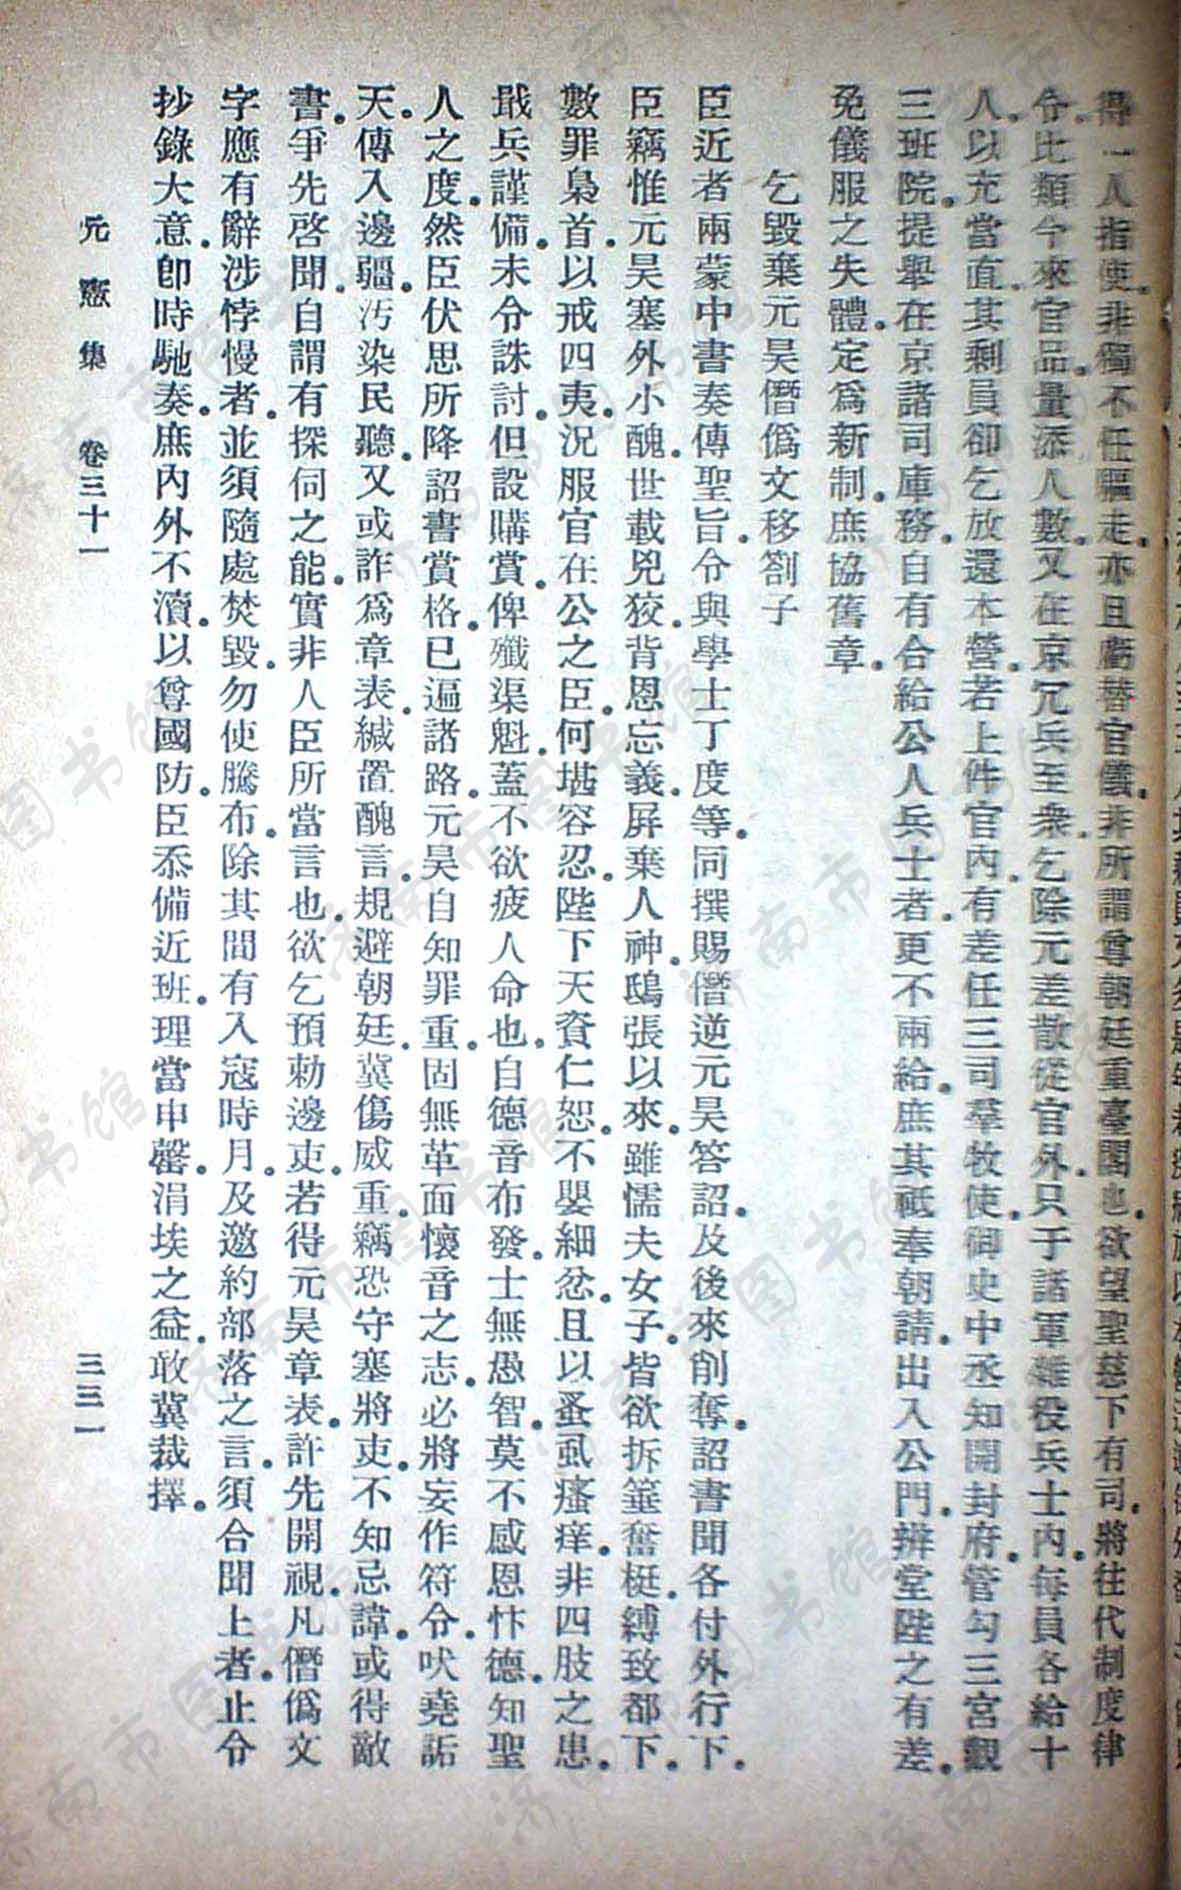 得一人指使非獨不任驅走亦且虧替官儀非所謂尊朝廷重臺閣也欲望聖慈下有司將往代制度律
令比類今來官品量添人數又在京冗兵至衆乞除元差散從官外只于諸軍雜役兵士內每員各給十
人以充當直其剩員卻乞放還本營若上件官內有差任三司羣牧使御史中丞知開封府管勾三宮觀
三班院提舉在京諸司庫務自有合給公人兵士者更不兩給庶其祗奉朝請出入公門辨堂陛之有差
免儀服之失體定爲新制庶協舊章
乞毀棄元昊僭僞文移劄子
臣近者兩蒙中書奏傳聖旨令與學士丁度等同撰賜僭逆元昊答詔及後來削奪詔書聞各付外行下
臣竊惟元昊塞外小醜世載兇狡背恩忘義屏棄人神鴟張以來雖懦夫女子皆欲拆箠奮梃縛致都下
數罪梟首以戒四夷況服官在公之臣何堪容忍陛下天資仁恕不嬰細忿且以蚤虱瘙痒非四肢之患
戢兵謹備未令誅討但設購賞俾殲渠魁蓋不欲疲人命也自德音布發士無愚智莫不感恩忭德知聖
人之度然臣伏思所降詔書賞格已遍諸路元昊自知罪重固無革面懷音之志必將妄作符令吠堯詬
天傳入邊疆汚染民聽又或詐爲章表緘置醜言規避朝廷冀傷威重竊恐守塞將吏不知忌諱或得敵
書爭先啓聞自謂有探伺之能實非人臣所當言也欲乞預勅邊吏若得元昊章表許先開視凡僭僞文
字應有辭涉悖慢者並須隨處焚毀勿使騰布除其間有入寇時月及邀約部落之言須合聞上者止令
抄錄大意卽時馳奏庶內外不瀆以尊國防臣忝備近班理當申罄涓埃之益敢冀裁擇
元憲集 卷三十一 三三一
济南市图书馆